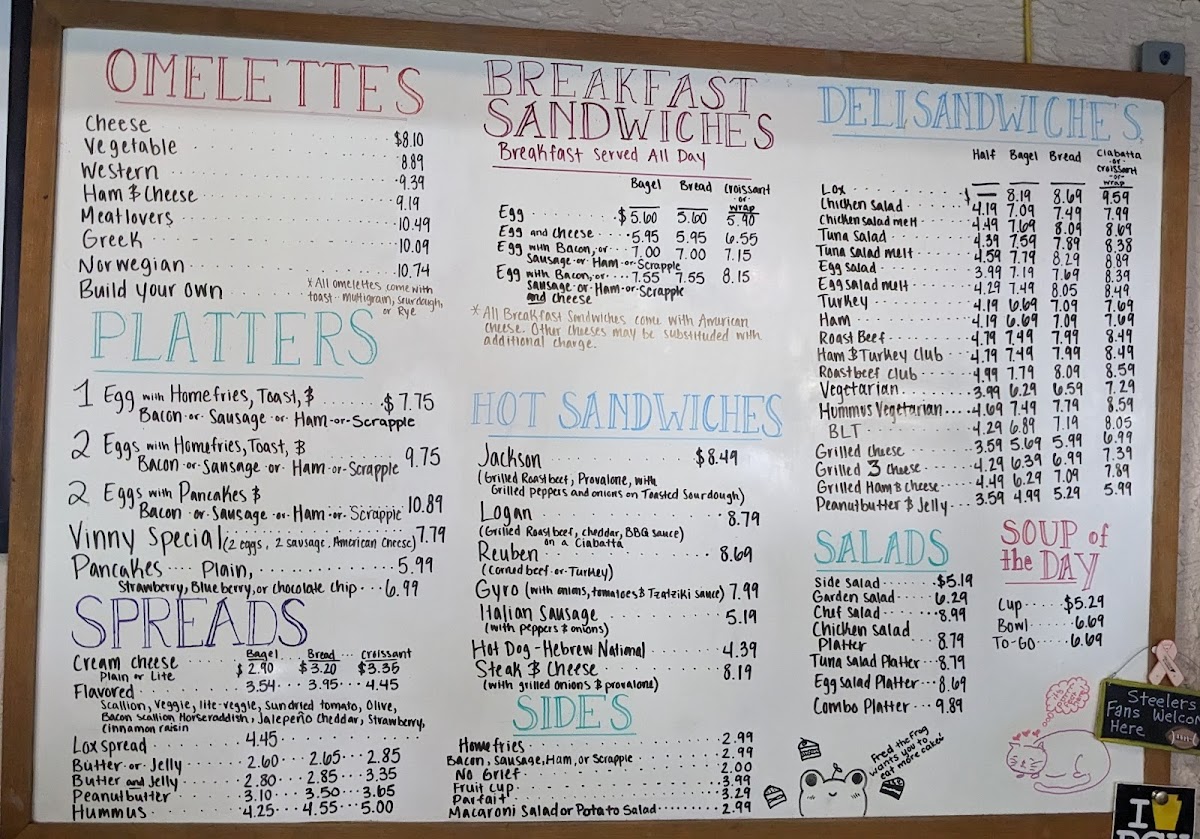 OMELETTES
Cheese $8.10
Vegetable 8.89
Western 9.39
Ham & Cheese 9.19
Meatlovers 10.49
Greek 10.09
Norwegian 10.74
Build your own
*All omelettes come with
toast - multigrain, sourdough,
or Rye
PLATTERS
1 Egg with Homefries, Toast, & $7.75
Bacon-or-Sausage-or-Ham-or-Scrapple
2 Eggs with Homefries, Toast, & 9.75
Bacon-or-Sausage-or-Ham-or-Scrapple
2 Eggs with Pancakes & 10.89
Bacon-or-Sausage-or-Ham-or-Scrapple
Vinny Special (2 eggs, 2 sausage, American Cheese) 7.79
Pancakes Plain, 5.99
Strawberry, Blueberry, or chocolate chip 6.99
SPREADS
Bagel Bread Croissant
Cream cheese $2.90 $3.20 $3.35
Plain or Lite
Flavored 3.54 3.95 4.45
Scallion, Veggie, lite-veggie, Sundried tomato, Olive,
Bacon scallion, Horseraddish, Jalepeño Cheddar, Strawberry,
Cinnamon raisin
Lox spread 4.45
Butter-or-Jelly 2.60 2.65 2.85
Butter and Jelly 2.80 2.85 3.35
Peanutbutter 3.10 3.50 3.65
Hummus 4.25 4.55 5.00
BREAKFAST
SANDWICHES
Breakfast Served All Day
Bagel Bread Croissant
-or-
wrap
Egg $5.60 5.60 5.90
Egg and cheese 5.95 5.95 6.55
Egg with Bacon, or 7.00 7.00 7.15
Sausage-or-Ham-or-Scrapple
Egg with Bacon, or 7.55 7.55 8.15
Sausage-or-Ham-or-Scrapple
and cheese
*All Breakfast Sandwiches come with American
cheese. Other cheeses may be substituted with
additional charge.
HOT SANDWICHES
Jackson $8.49
(Grilled Roastbeef, Provalone, with
Grilled peppers and onions on Toasted Sourdough)
Logan 8.79
(Grilled Roast beef, cheddar, BBQ sauce)
on a Ciabatta
Reuben 8.69
(Corned beef-or-Turkey)
Gyro (with onions, tomatoes & Tzatziki sauce) 7.99
Italian Sausage 5.19
(with peppers & onions)
Hot Dog - Hebrew National 4.39
Steak & Cheese 8.19
(with grilled onions & provalone)
SIDE'S
Homefries 2.99
Bacon, Sausage, Ham, or Scrapple 2.99
No Grief 2.00
Fruit cup 3.99
Parfait 3.29
Macaroni Salad or Potato Salad 2.99
DELI SANDWICHE'S
Half Bagel Bread Ciabatta
-or-
croissant
-or-
wrap
Lox $ — 8.19 8.69 9.59
Chicken Salad 4.19 7.09 7.49 7.99
Chicken salad melt 4.49 7.69 8.09 8.69
Tuna Salad 4.39 7.59 7.89 8.38
Tuna Salad melt 4.59 7.79 8.29 8.89
Egg Salad 3.99 7.19 7.69 8.39
Egg Salad melt 4.29 7.49 8.05 8.49
Turkey 4.19 6.69 7.09 7.69
Ham 4.19 6.69 7.09 7.69
Roast Beef 4.79 7.49 7.99 8.49
Ham & Turkey club 4.79 7.49 7.99 8.49
Roastbeef club 4.99 7.79 8.09 8.59
Vegetarian 3.99 6.29 6.59 7.29
Hummus Vegetarian 4.69 7.49 7.79 8.59
BLT 4.29 6.89 7.19 8.05
Grilled Cheese 3.59 5.69 5.99 6.99
Grilled 3 Cheese 4.29 6.39 6.99 7.39
Grilled Ham & cheese 4.49 6.29 7.09 7.89
Peanutbutter & Jelly 3.59 4.99 5.29 5.99
SALADS
Side Salad $5.19
Garden Salad 6.29
Chef Salad 8.99
Chicken Salad
Platter 8.79
Tuna Salad Platter 8.79
Egg Salad Platter 8.69
Combo Platter 9.89
SOUP of
the DAY
Cup $5.29
Bowl 6.69
To-Go 6.69
Fred the Frog
wants you to
eat more cake!
Steelers
Fans Welco
Here
I